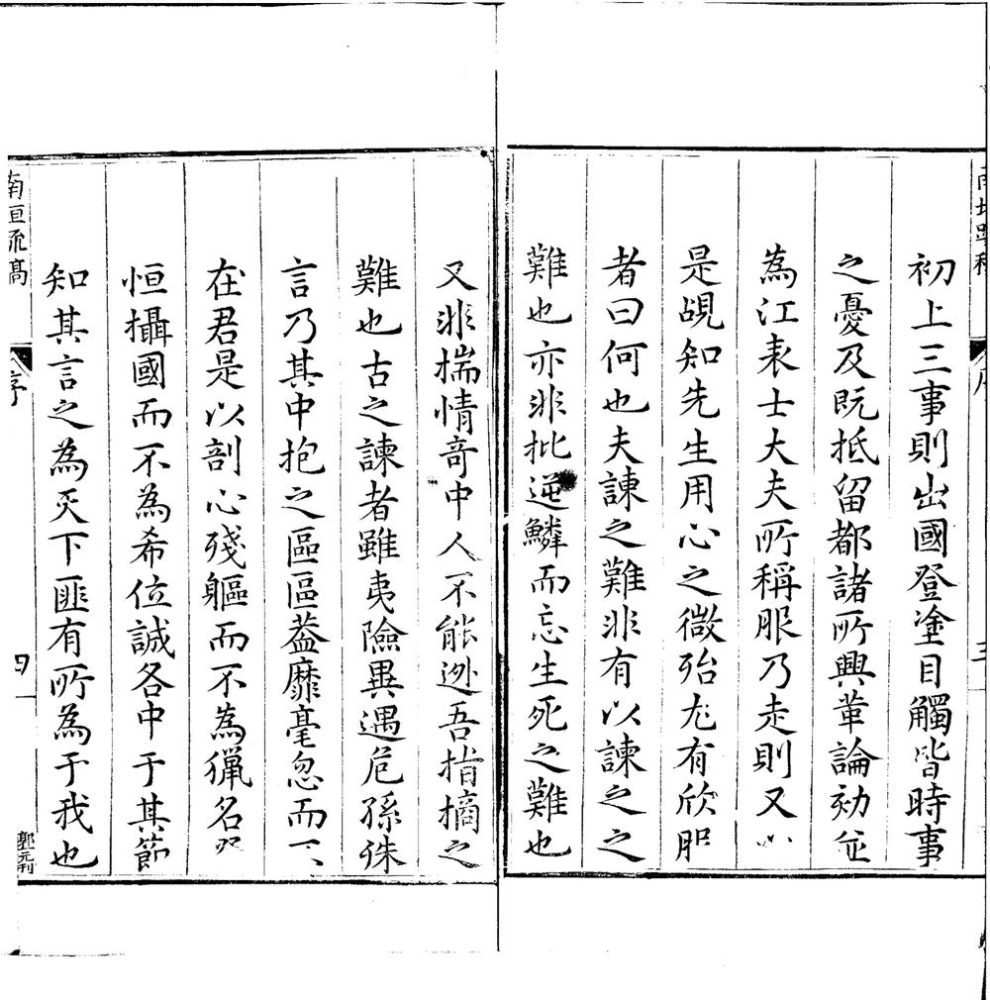 初上三事則出國登塗目觸皆時事
之憂及既抵留都諸所興革論劾並
為江表士大夫所稱服乃走則又以
是覘知先生用心之微殆尤有欣
者曰何也夫諫之難非有以諫之之
難也亦非批逆鱗而忘生死之難也
又非揣情奇中人不能逃吾指摘之
難也古之諫者雖夷險異遇危孫侏
言乃其中抱之區區葢靡毫忽而不
在君是以剖心殘軀而不為獵名
恒攝國而不為希位誠各中于其節
知其言之為天下匪有所為于我也
南垣疏稿
序
四
郭元刊